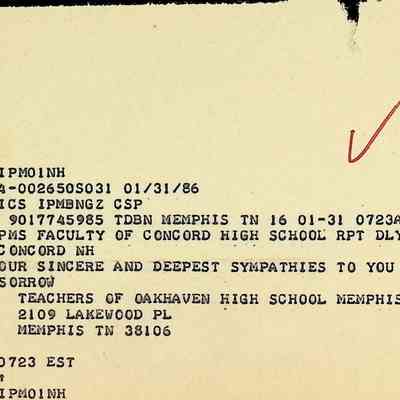 IPMO1NH
4-002650S031 01/31/86
ICS IPMBNGZ CSP
9017745985 TDBN MEMPHIS TN 16 01-31 0723A
PMS FACULTY OF CONCORD HIGH SCHOOL RPT DLY
CONCORD NH
OUR SINCERE AND DEEPEST SYMPATHIES TO YOU
SORROW
TEACHERS OF OAKHAVEN HIGH SCHOOL MEMPHIS
2109 LAKEWOOD PL
MEMPHIS TN 38106
0723 EST
IPMO1NH